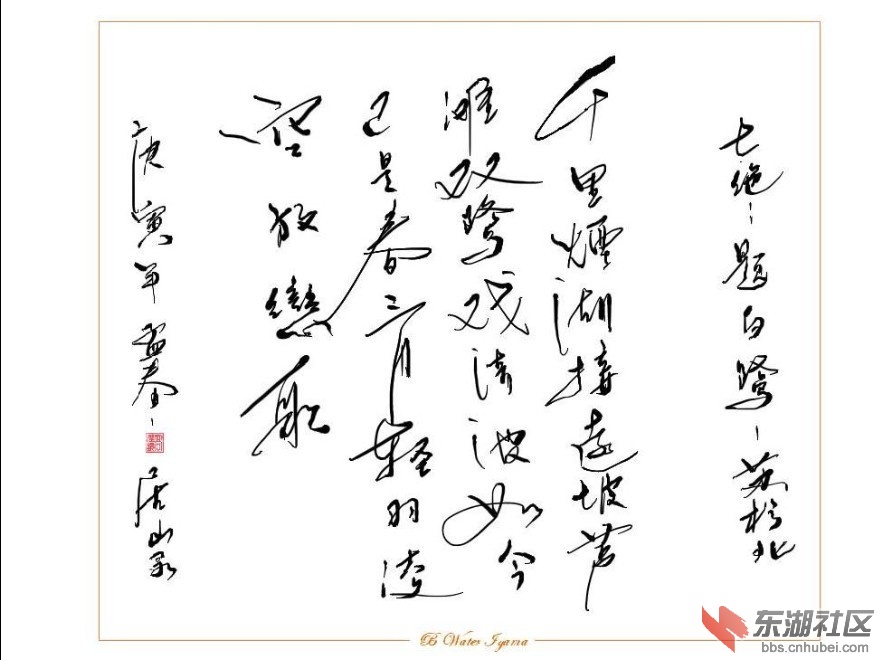 七绝：题白鹭－苏北
千里煙湖接远坡芦
滩双鹭戏清波如今
已是春三月轻羽凌
空放戀歌
庚寅年孟春 居山
B Water Iyana
东湖社区
bbs.cnhubei.com